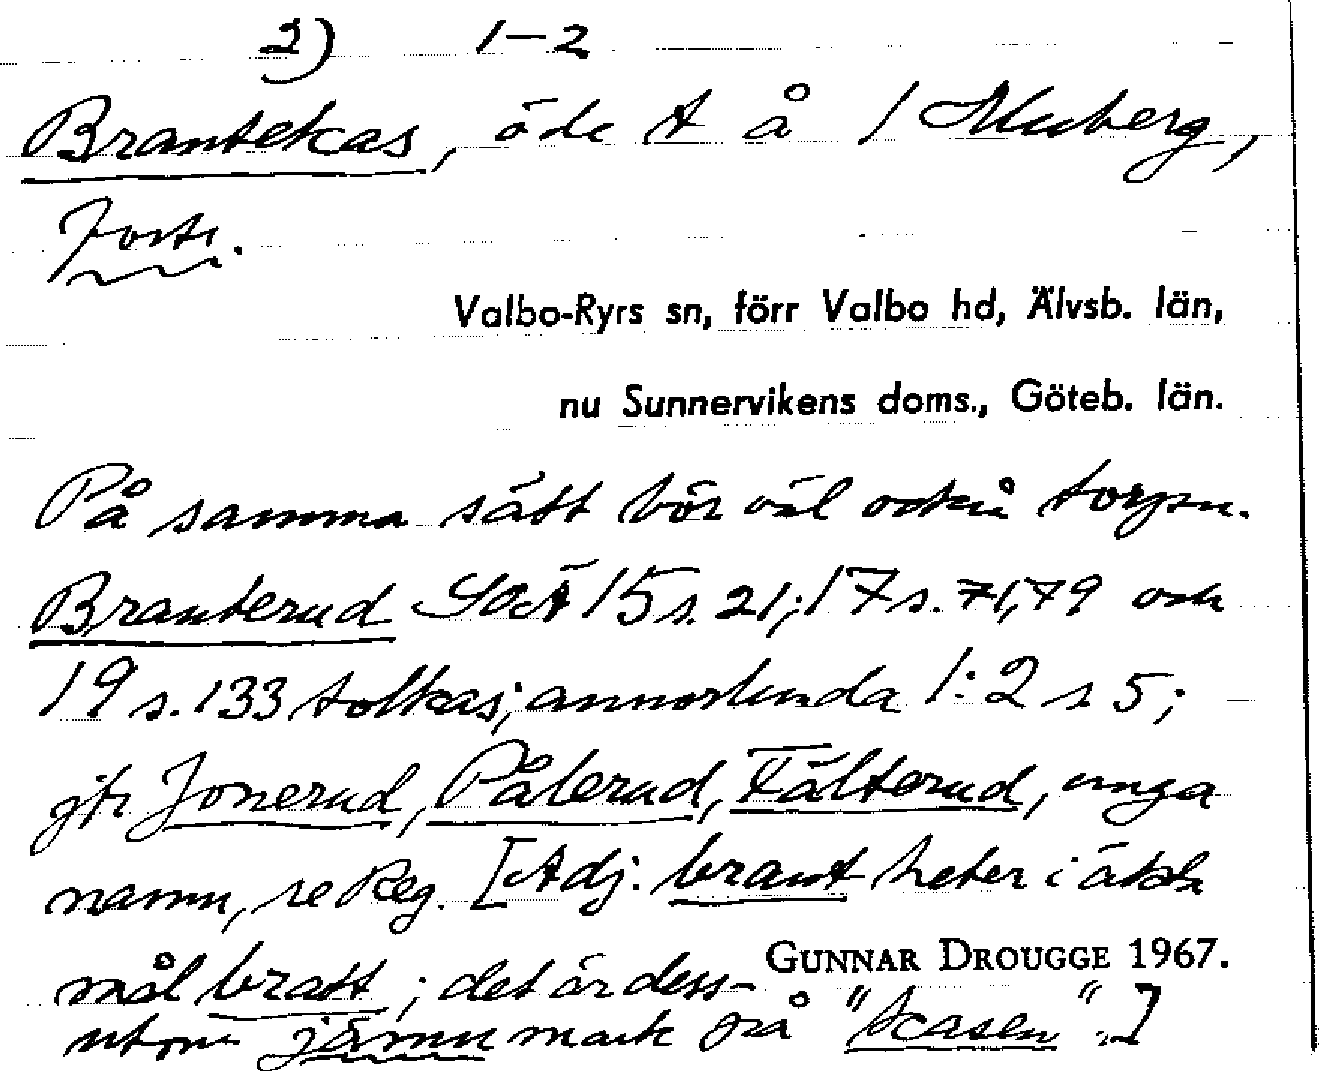 2) 1–2
Brantekas, öde t å 1 Muberg,
Forts.
Valbo-Ryrs sn, förr Valbo hd, Älvsb. län,
nu Sunnervikens doms., Göteb. län.
På samma sätt bör väl också torpn.
Branterud SOÄ 15 s. 21; 17 s. 71, 79 och
19 s. 133 tolkas; annorlunda 1:2 s 5;
jfr Jonerud, Pålerud, Fälterud, unga
namn, se Reg. [Adj. brant heter i äkta
mål bratt; det är dess-
GUNNAR DROUGGE 1967.
utom jämn mark på "kasen".]